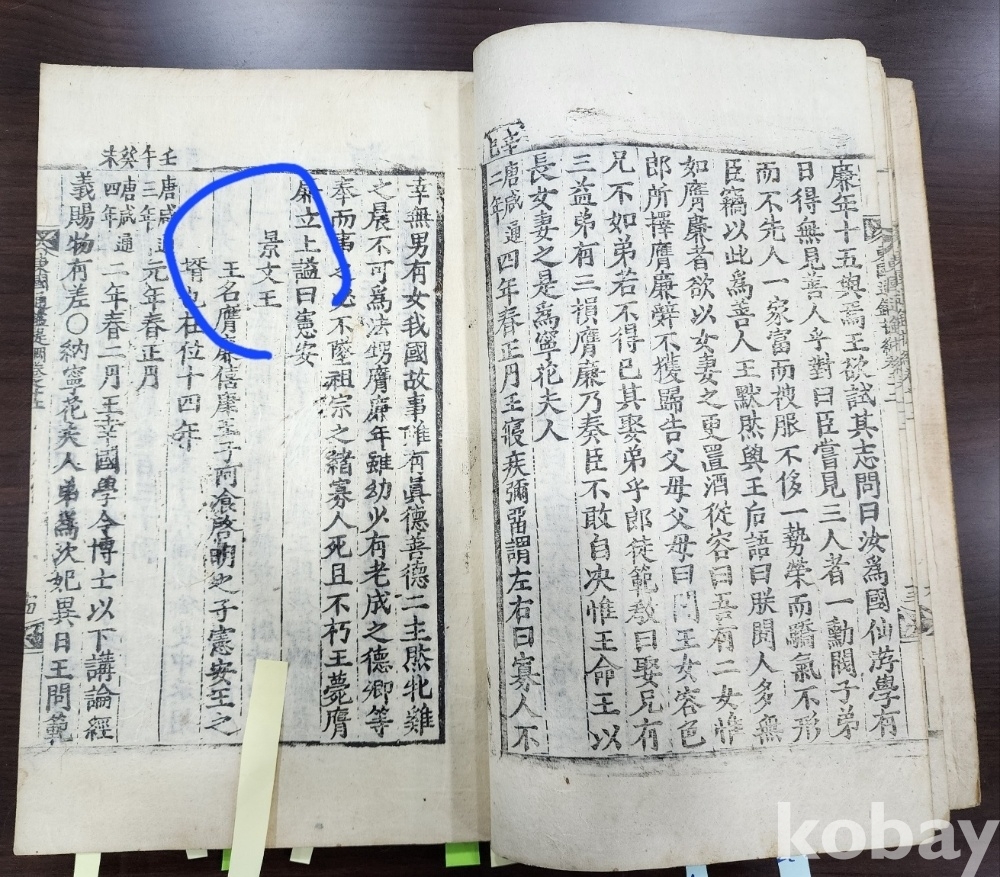 廉年十五與焉王欲試其志問曰汝爲國仙游學有
日得無見善人乎對曰臣嘗見三人者一勳閥子弟
而不先人一家富而被服不侈一勢榮而驕氣不形
臣竊以此爲善人王默然與王后語曰朕閱人多無
如膺廉者欲以女妻之更置酒從容曰吾有二女惟
郎所擇膺廉辭不獲歸告父母父母曰聞王女容色
兄不如弟若不得已其娶弟乎郎徒範教曰娶兄有
三益弟有三損膺廉乃奏臣不敢自决惟王命王以
長女妻之是爲寧花夫人
辛巳 唐咸通二年 四年春正月王寢疾彌留謂左右曰寡人不
幸無男有女我國故事雖有眞德善德二主然牝雞
之晨不可爲法甥膺廉年雖幼少有老成之德卿等
奉而事之必不墜祖宗之緖寡人死且不朽王薨膺
廉立上謚曰憲安
景文王
王名膺廉僖康王子阿飡啓明之子憲安王之
壻也在位十四年
壬午 唐咸通三年 元年春正月
癸未 唐咸通四年 二年春二月王幸國學令博士以下講論經
義賜物有差○納寧花夫人弟爲次妃異日王問範
東國通鑑提綱卷之
kobay